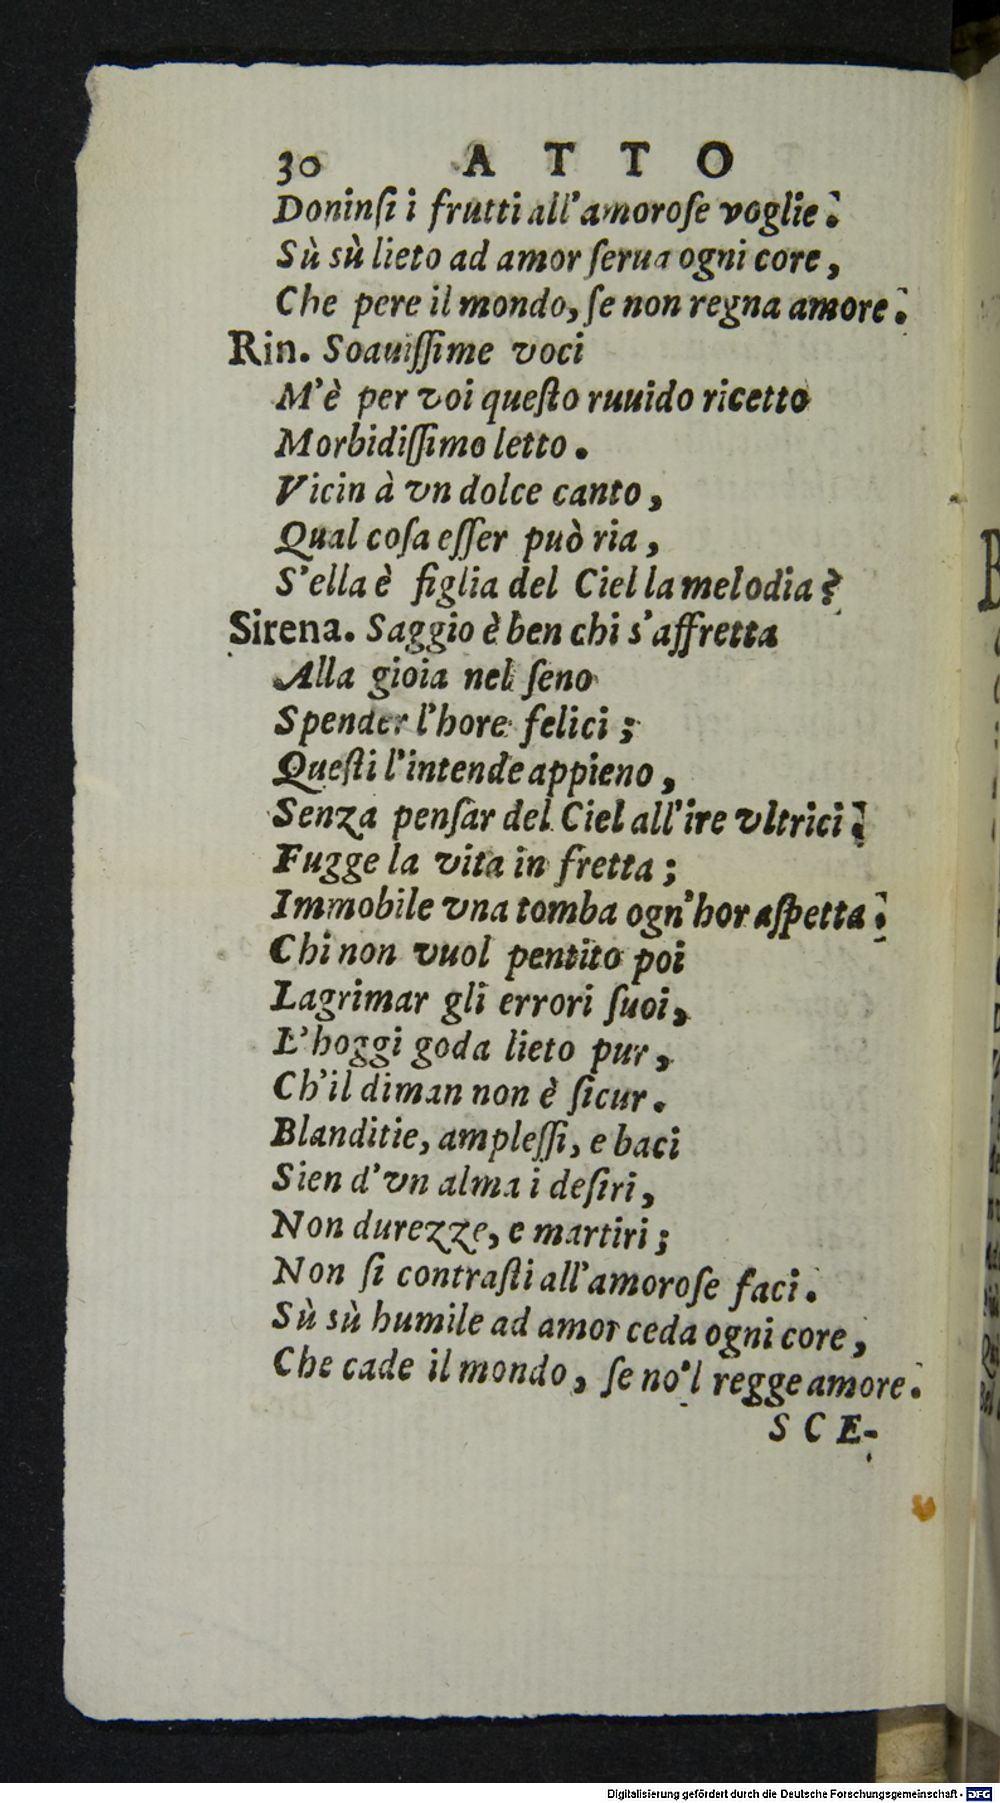 30 ATTO
Doninſi i frutti all'amoroſe voglie.
Sù sù lieto ad amor ſerua ogni core,
Che pere il mondo, ſe non regna amore.
Rin. Soauiſſime voci
M'è per voi queſto ruuido ricetto
Morbidiſſimo letto.
Vicin à vn dolce canto,
Qual coſa eſſer può ria,
S'ella è figlia del Ciel la melodia?
Sirena. Saggio è ben chi s'affretta
Alla gioia nel ſeno
Spender l'hore felici;
Queſti l'intende appieno,
Senza penſar del Ciel all'ire vltrici.
Fugge la vita in fretta;
Immobile vna tomba ogn'hor aſpetta.
Chi non vuol pentito poi
Lagrimar gli errori ſuoi,
L'hoggi goda lieto pur,
Ch'il diman non è ſicur.
Blanditie, ampleſſi, e baci
Sien d'vn alma i deſiri,
Non durezze, e martiri;
Non ſi contraſti all'amoroſe faci.
Sù sù humile ad amor ceda ogni core,
Che cade il mondo, ſe no'l regge amore.
SCE-
Digitalisierung gefördert durch die Deutsche Forschungsgemeinschaft - DFG